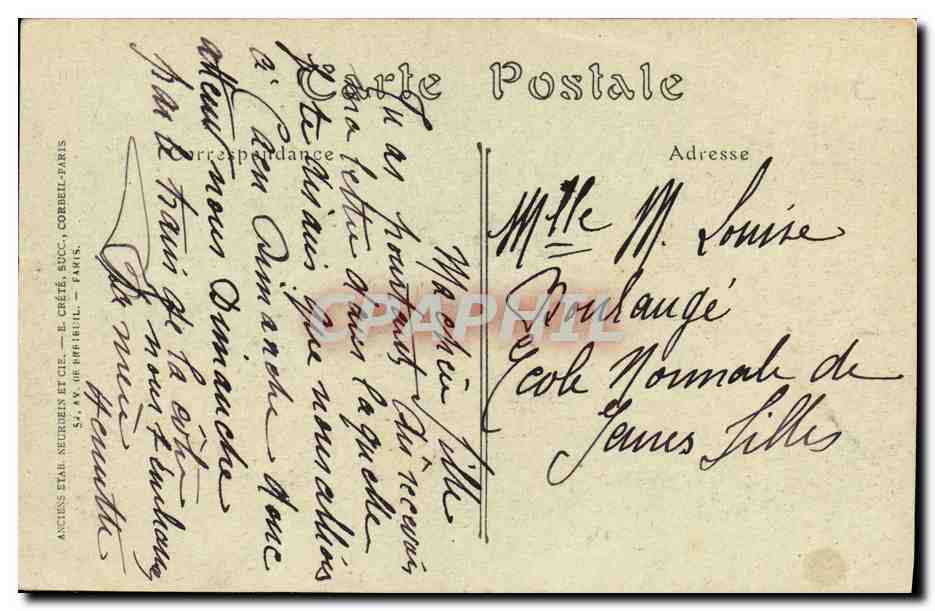 Carte Postale
Correspondance
Adresse
Ma chère fille
Tu as pourtant dû recevoir
ma lettre dans laquelle
je te disais que nous allions
à Caen Dimanche donc
attend nous Dimanche
par le train de la côte
nous t'embrassons
Ta mère
Mlle M. Louise
Boulangé
Ecole Normale de
Jeunes Filles
ANCIENS ETAB. NEURDEIN ET CIE. — E. CRÉTÉ, SUCC., CORBEIL-PARIS
52, AV. DE BRETEUIL. — PARIS.
CPAPHIL